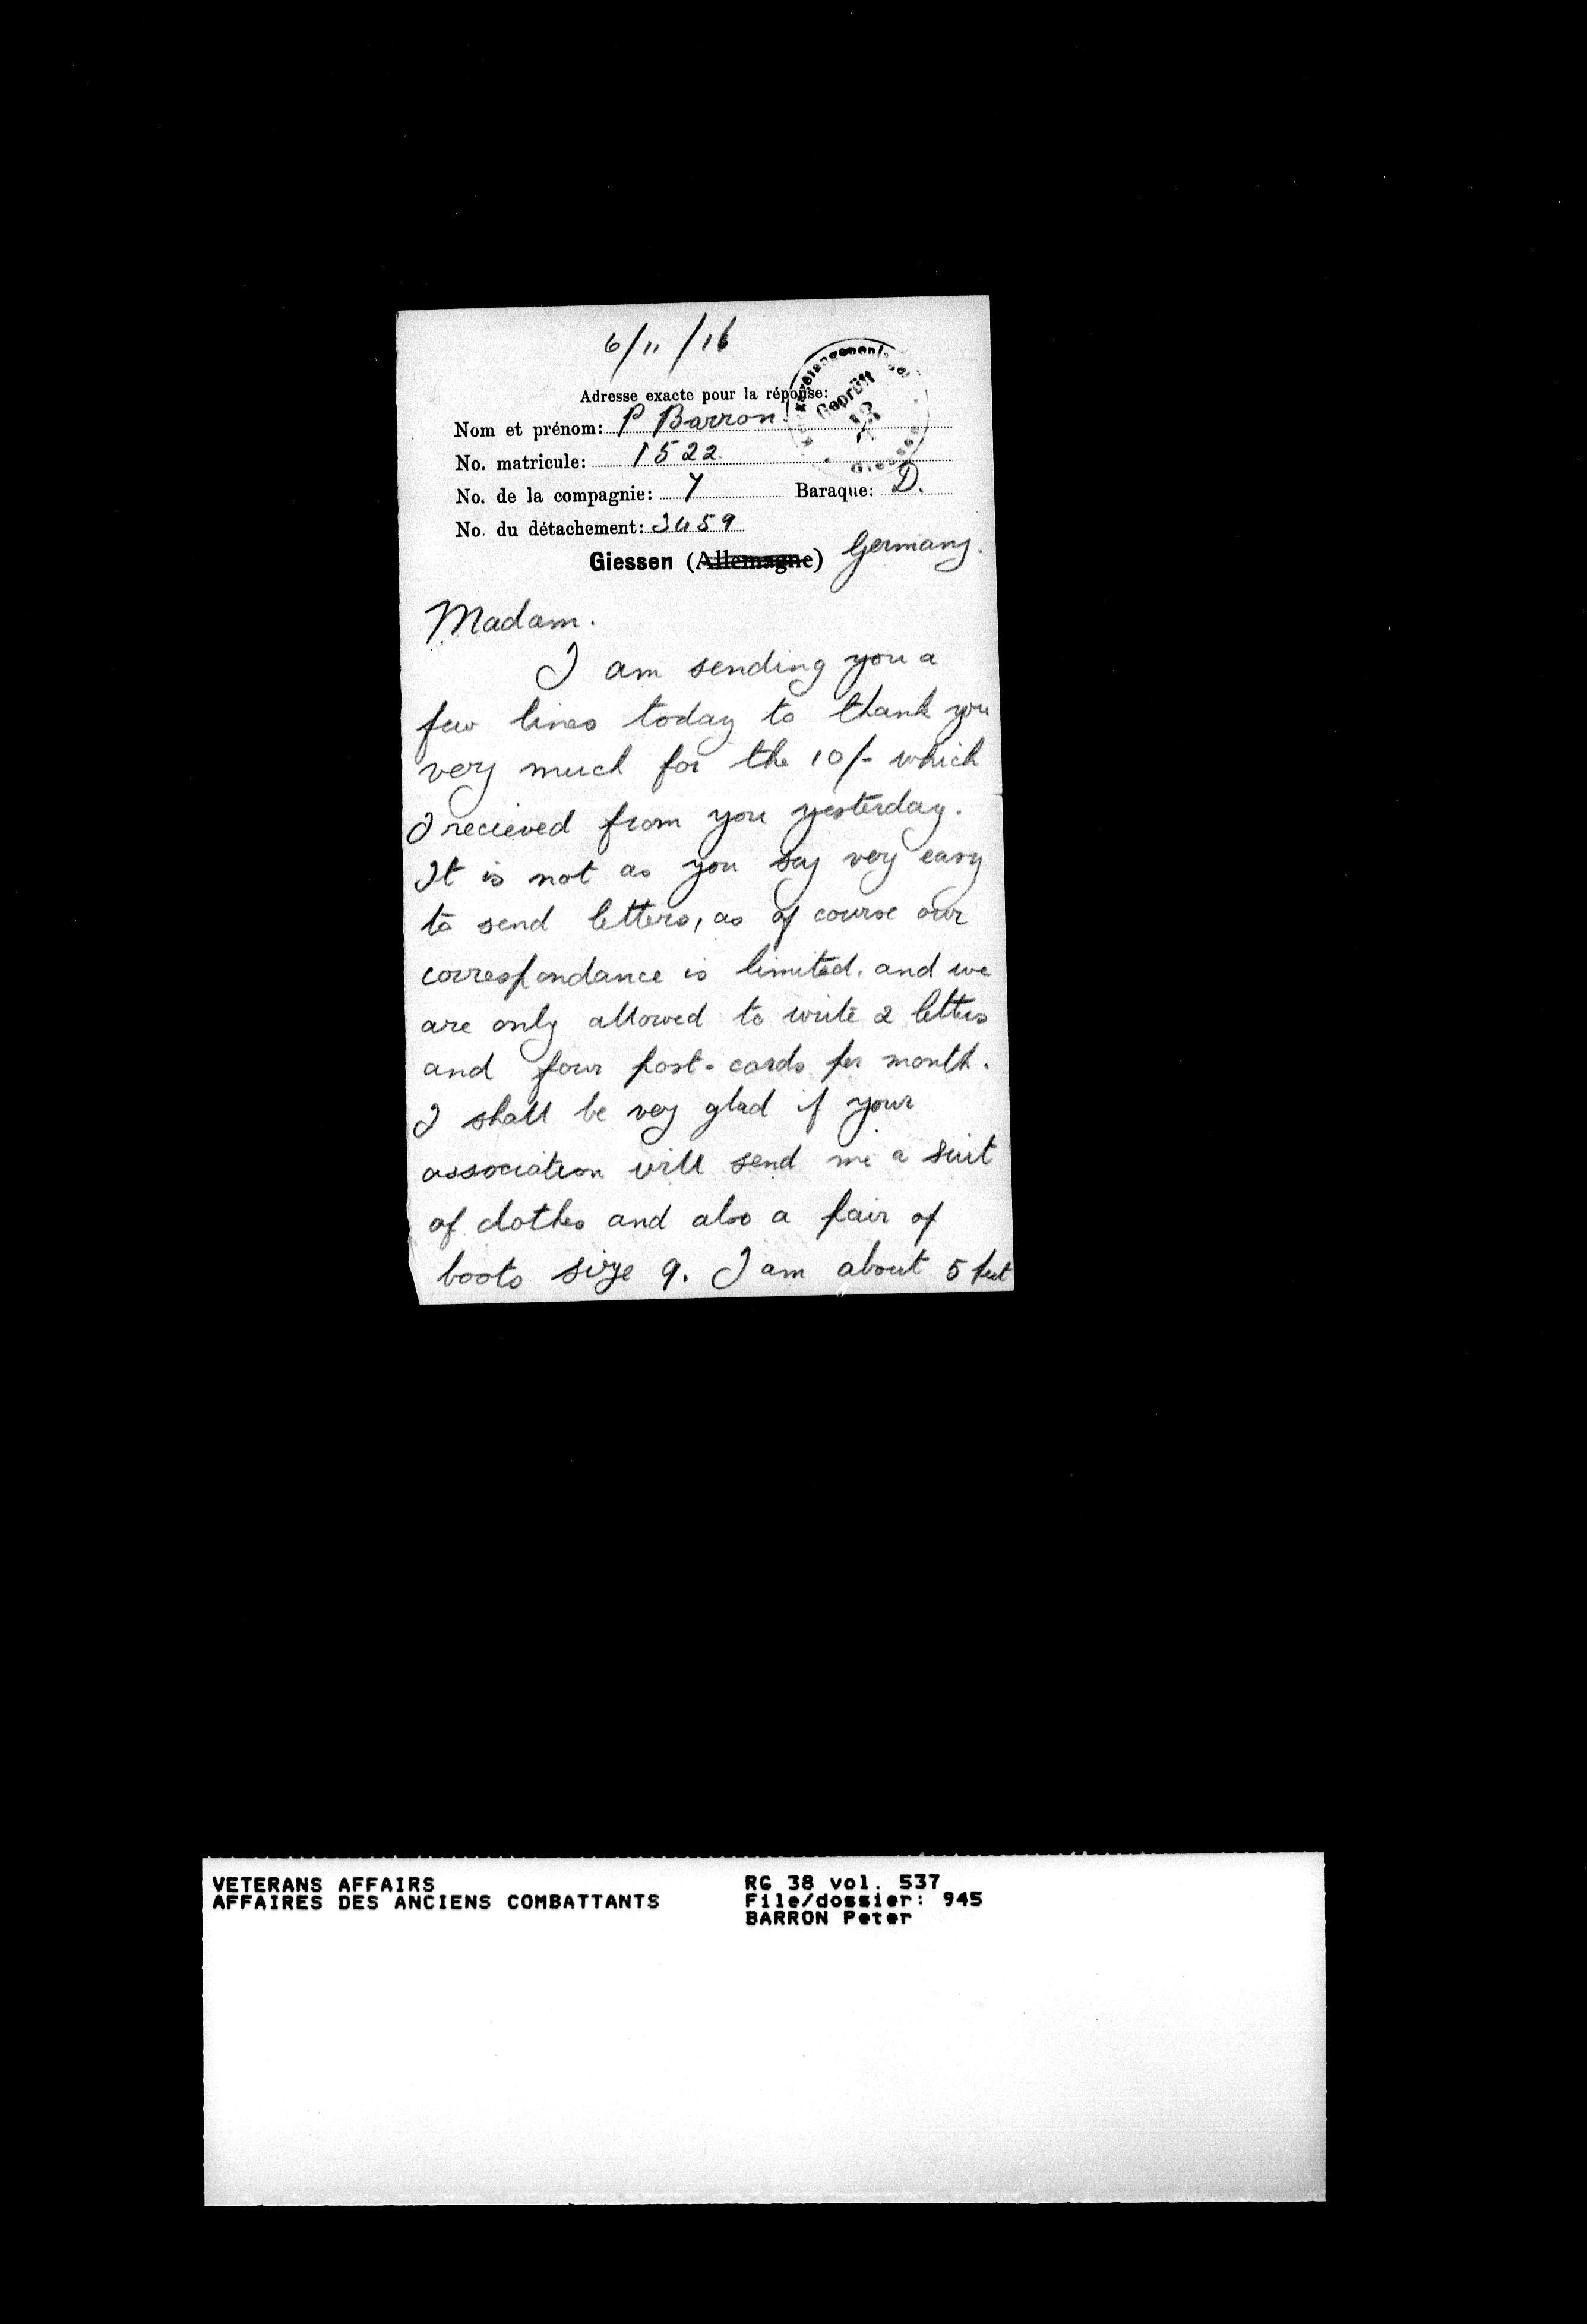 6/11/16
Adresse exacte pour la réponse:
Nom et prénom: P Barron.
No. matricule: 1522.
No. de la compagnie: 7 Baraque: D.
No. du détachement: 3459
Giessen (Allemagne) Germany.
Geprüft
Giessen
Madam.
I am sending you a
few lines today to thank you
very much for the 10/- which
I recieved from you yesterday.
It is not as you say very easy
to send letters, as of course our
correspondance is limited, and we
are only allowed to write 2 letters
and four post-cards per month.
I shall be very glad if your
association will send me a suit
of clothes and also a pair of
boots size 9. I am about 5 feet
VETERANS AFFAIRS
AFFAIRES DES ANCIENS COMBATTANTS
RG 38 vol. 537
File/dossier: 945
BARRON Peter